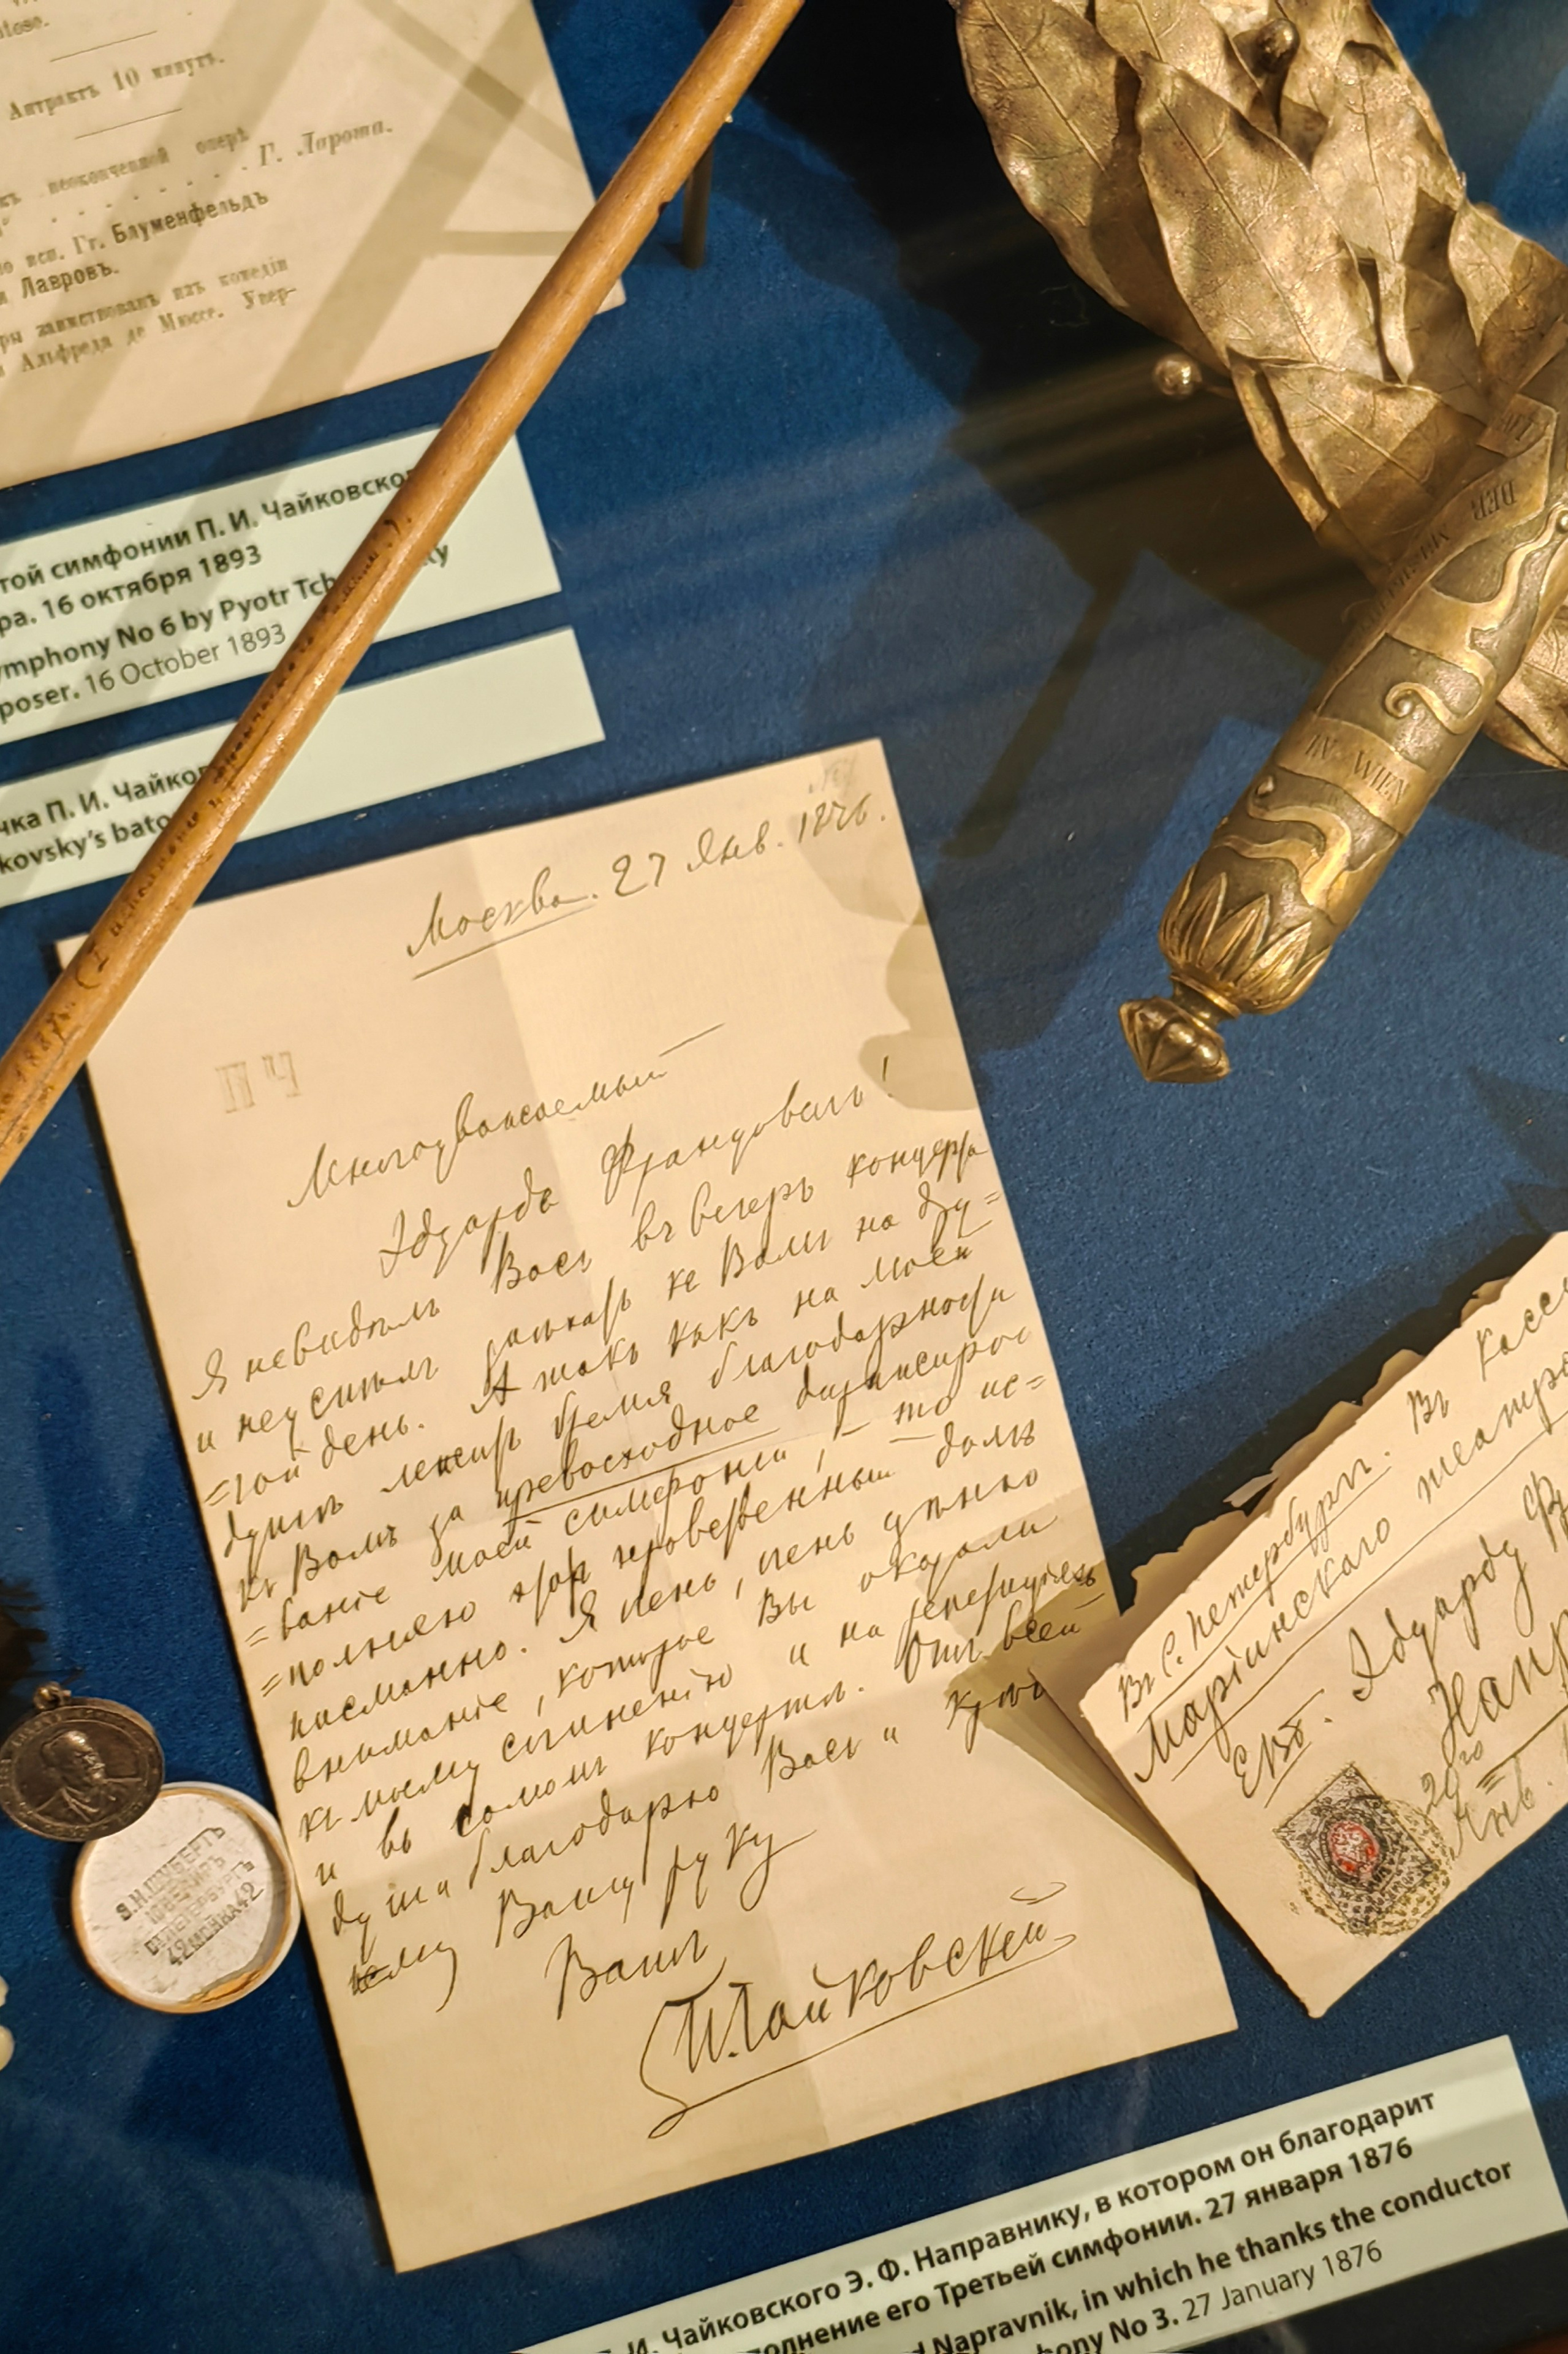 Антрактъ 10 минутъ.
неоконченной оперѣ
Г. Лароша.
исп. Гг. Блуменфельдъ
и Лавровъ.
заимствованъ изъ комедіи
Альфреда де Мюссе. Увер-
той симфонии П. И. Чайковско
ра. 16 октября 1893
ymphony No 6 by Pyotr Tch ky
poser. 16 October 1893
чка П. И. Чайков
kovsky's bato
DER
IN WIEN
Москва. 27 Янв. 1876.
ПЧ
Многоуважаемый
Эдуардъ Францовичъ!
Я невидѣлъ Васъ въ вечеръ концерта
и неуспѣлъ заѣхать къ Вамъ на дру=
=гой день. А такъ какъ на моей
душѣ лежитъ бремя благодарности
къ Вамъ за превосходное дирижиров
=ваніе моей симфоніи, – то ис=
=полняю этотъ нравственный долгъ
письменно. Я очень, очень цѣню
вниманіе, которое Вы оказали
къ моему сочиненію и на репетиціяхъ
и въ самомъ концертѣ. Отъ всей
души благодарю Васъ и крѣпко
жму Вашу руку
Вашъ
П. Чайковскій
Въ С. Петербургъ. Въ Касс
Маріинскаго театра
Евб. Эдуарду
Напр
20го
Янв.
В.Н. ШУБЕРТЪ
ЮВЕЛИРЪ
СП. ПЕТЕРБУРГЪ
42 МОЙКА 42
И. Чайковского Э. Ф. Направнику, в котором он благодарит
олнение его Третьей симфонии. 27 января 1876
d Napravnik, in which he thanks the conductor
hony No 3. 27 January 1876